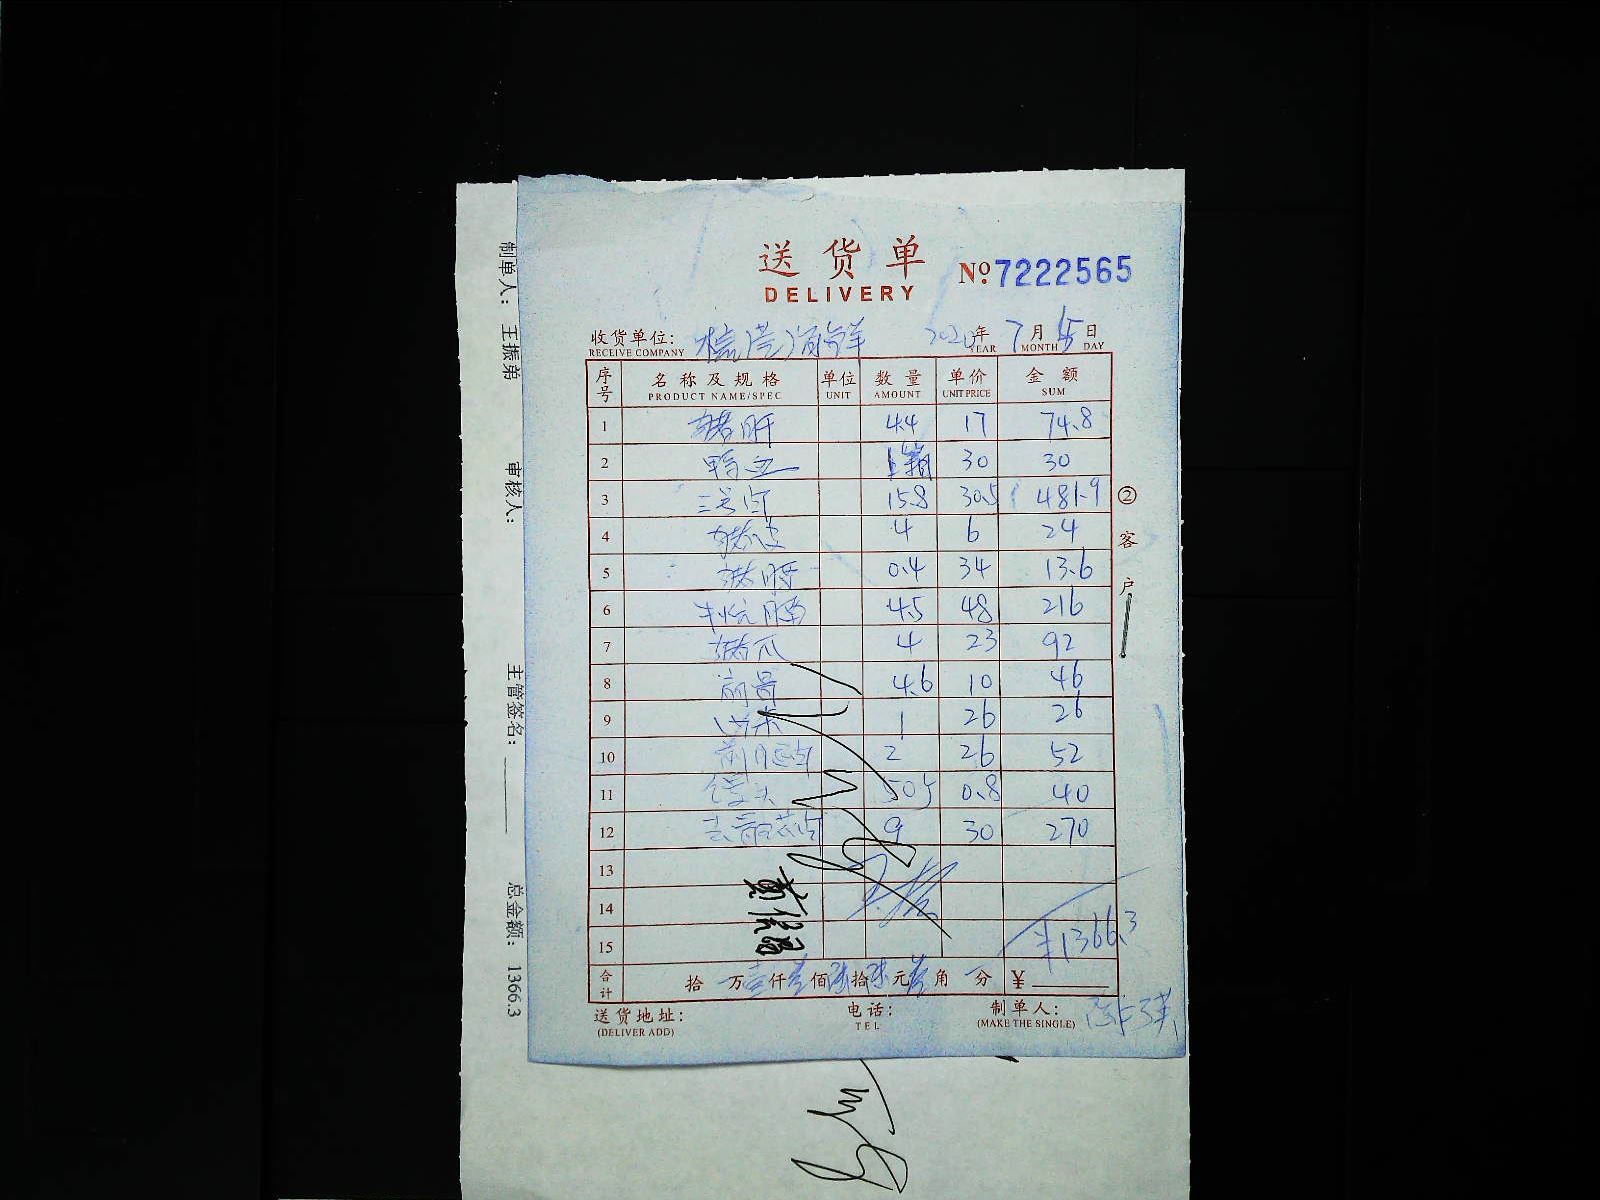 送货单
DELIVERY
№ 7222565
收货单位: 海鲜 2020年 7月 15日
RECEIVE COMPANY YEAR MONTH DAY
序号 名称及规格 单位 数量 单价 金额
PRODUCT NAME/SPEC UNIT AMOUNT UNIT PRICE SUM
1 猪肝 4.4 17 74.8
2 鸭血 1箱 30 30
3 三号肉 15.8 30.5 481.9
4 猪皮 4 6 24
5 猪腰 0.4 34 13.6
6 牛坑腩 4.5 48 216
7 猪爪 4 23 92
8 前骨 4.6 10 46
9 1 26 26
10 2 26 52
11 馒头 50个 0.8 40
12 9 30 270
13
14
15
¥1366.3
合计 拾 万壹仟叁佰陆拾陆元叁角 分 ¥
送货地址:
(DELIVER ADD)
电话:
TEL
制单人:
(MAKE THE SINGLE)
②客户
制单人: 王振弟 审核人: 主管签名: 总金额: 1366.3